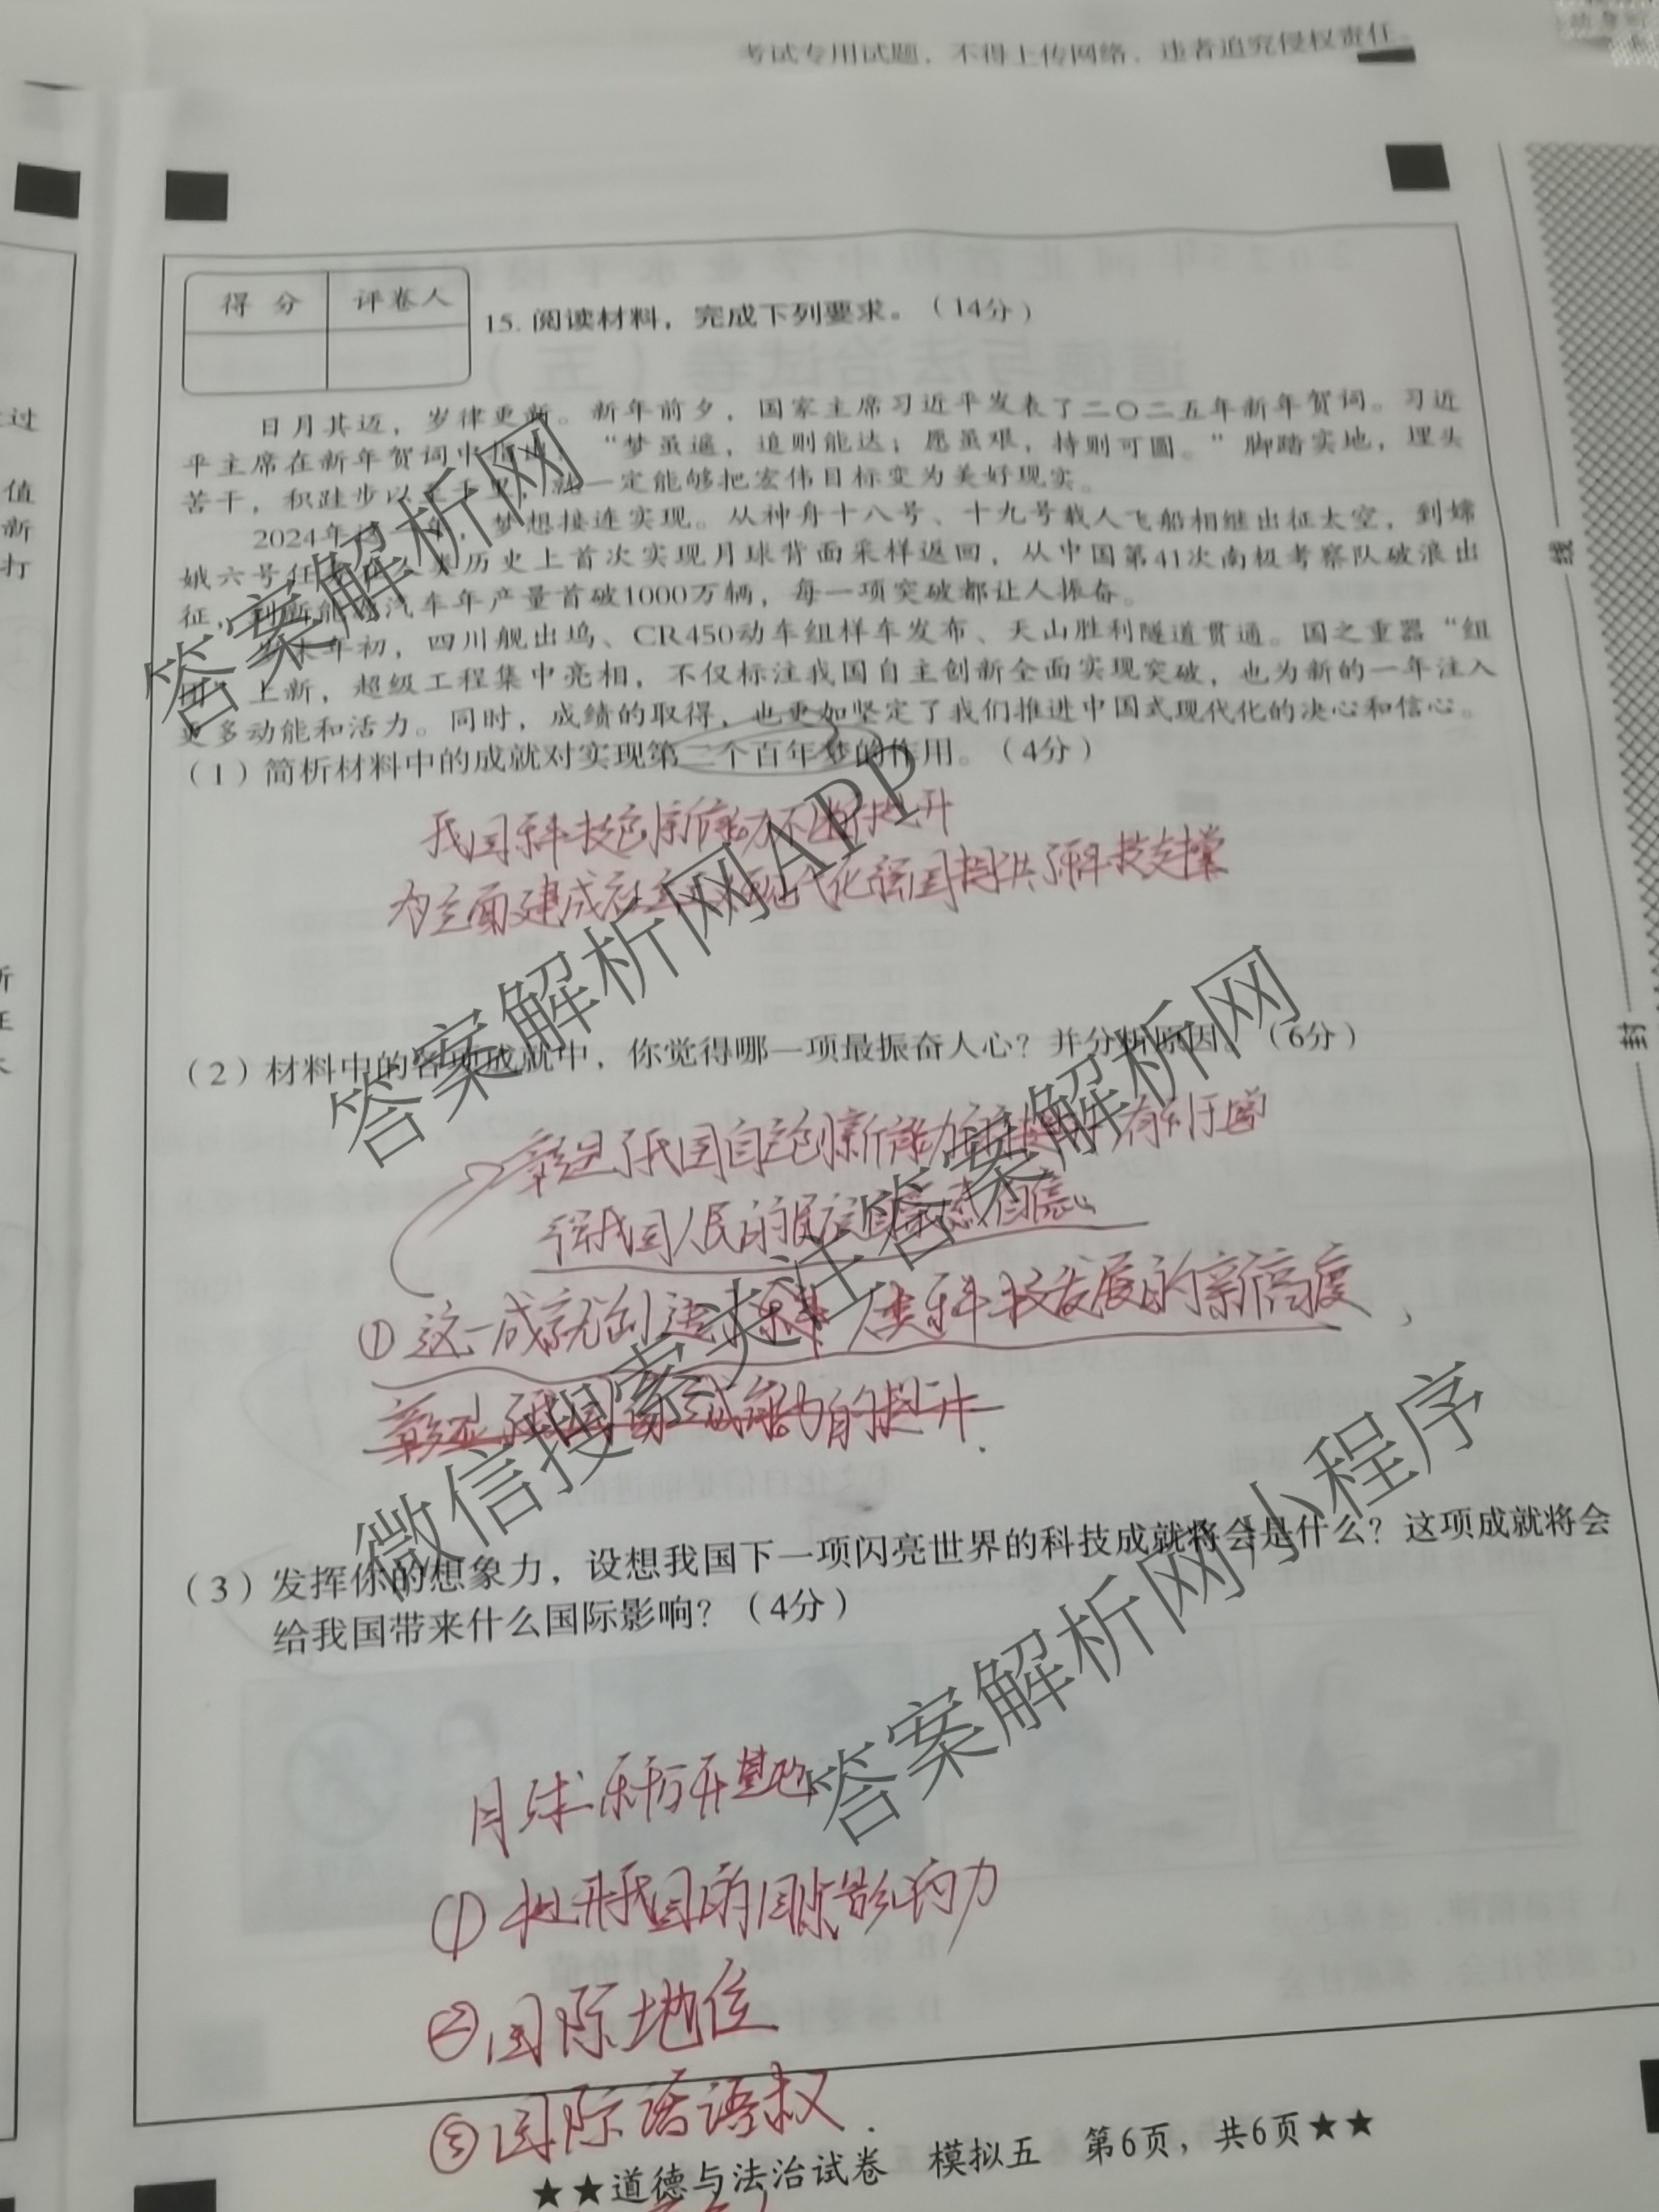 考试专用试题，不得上传网络，违者追究侵权责任
得 分 评卷人
15. 阅读材料，完成下列要求。（14分）
日月其迈，岁律更新。新年前夕，国家主席习近平发表了二〇二五年新年贺词。习近
平主席在新年贺词中指出，“梦虽遥，追则能达；愿虽艰，持则可圆。”脚踏实地，埋头
苦干，积跬步以至千里，就一定能够把宏伟目标变为美好现实。
2024年这一年，梦想接连实现。从神舟十八号、十九号载人飞船相继出征太空，到嫦
娥六号任务在人类历史上首次实现月球背面采样返回，从中国第41次南极考察队破浪出
征，到新能源汽车年产量首破1000万辆，每一项突破都让人振奋。
岁末年初，四川舰出坞、CR450动车组样车发布、天山胜利隧道贯通。国之重器“组
团”上新，超级工程集中亮相，不仅标注我国自主创新全面实现突破，也为新的一年注入
更多动能和活力。同时，成绩的取得，也更加坚定了我们推进中国式现代化的决心和信心。
（1）简析材料中的成就对实现第二个百年梦的作用。（4分）
我国科技创新能力不断提升
为全面建成社会主义现代化强国提供了科技支撑
（2）材料中的各项成就中，你觉得哪一项最振奋人心？并分析原因。（6分）
彰显了我国自主创新能力 有利于增
强我国人民的民族自豪感 自信心
①这一成就创造了 人类科技发展的新高度，
彰显了我国 能力的提升.
（3）发挥你的想象力，设想我国下一项闪亮世界的科技成就将会是什么？这项成就将会
给我国带来什么国际影响？（4分）
月球科研基地
①提升我国的国际影响力
②国际地位
③国际话语权.
★★道德与法治试卷 模拟五 第6页，共6页★★
线
封
过
值
新
打
答案解析网
答案解析网APP
微信搜索关注答案解析网
答案解析网小程序